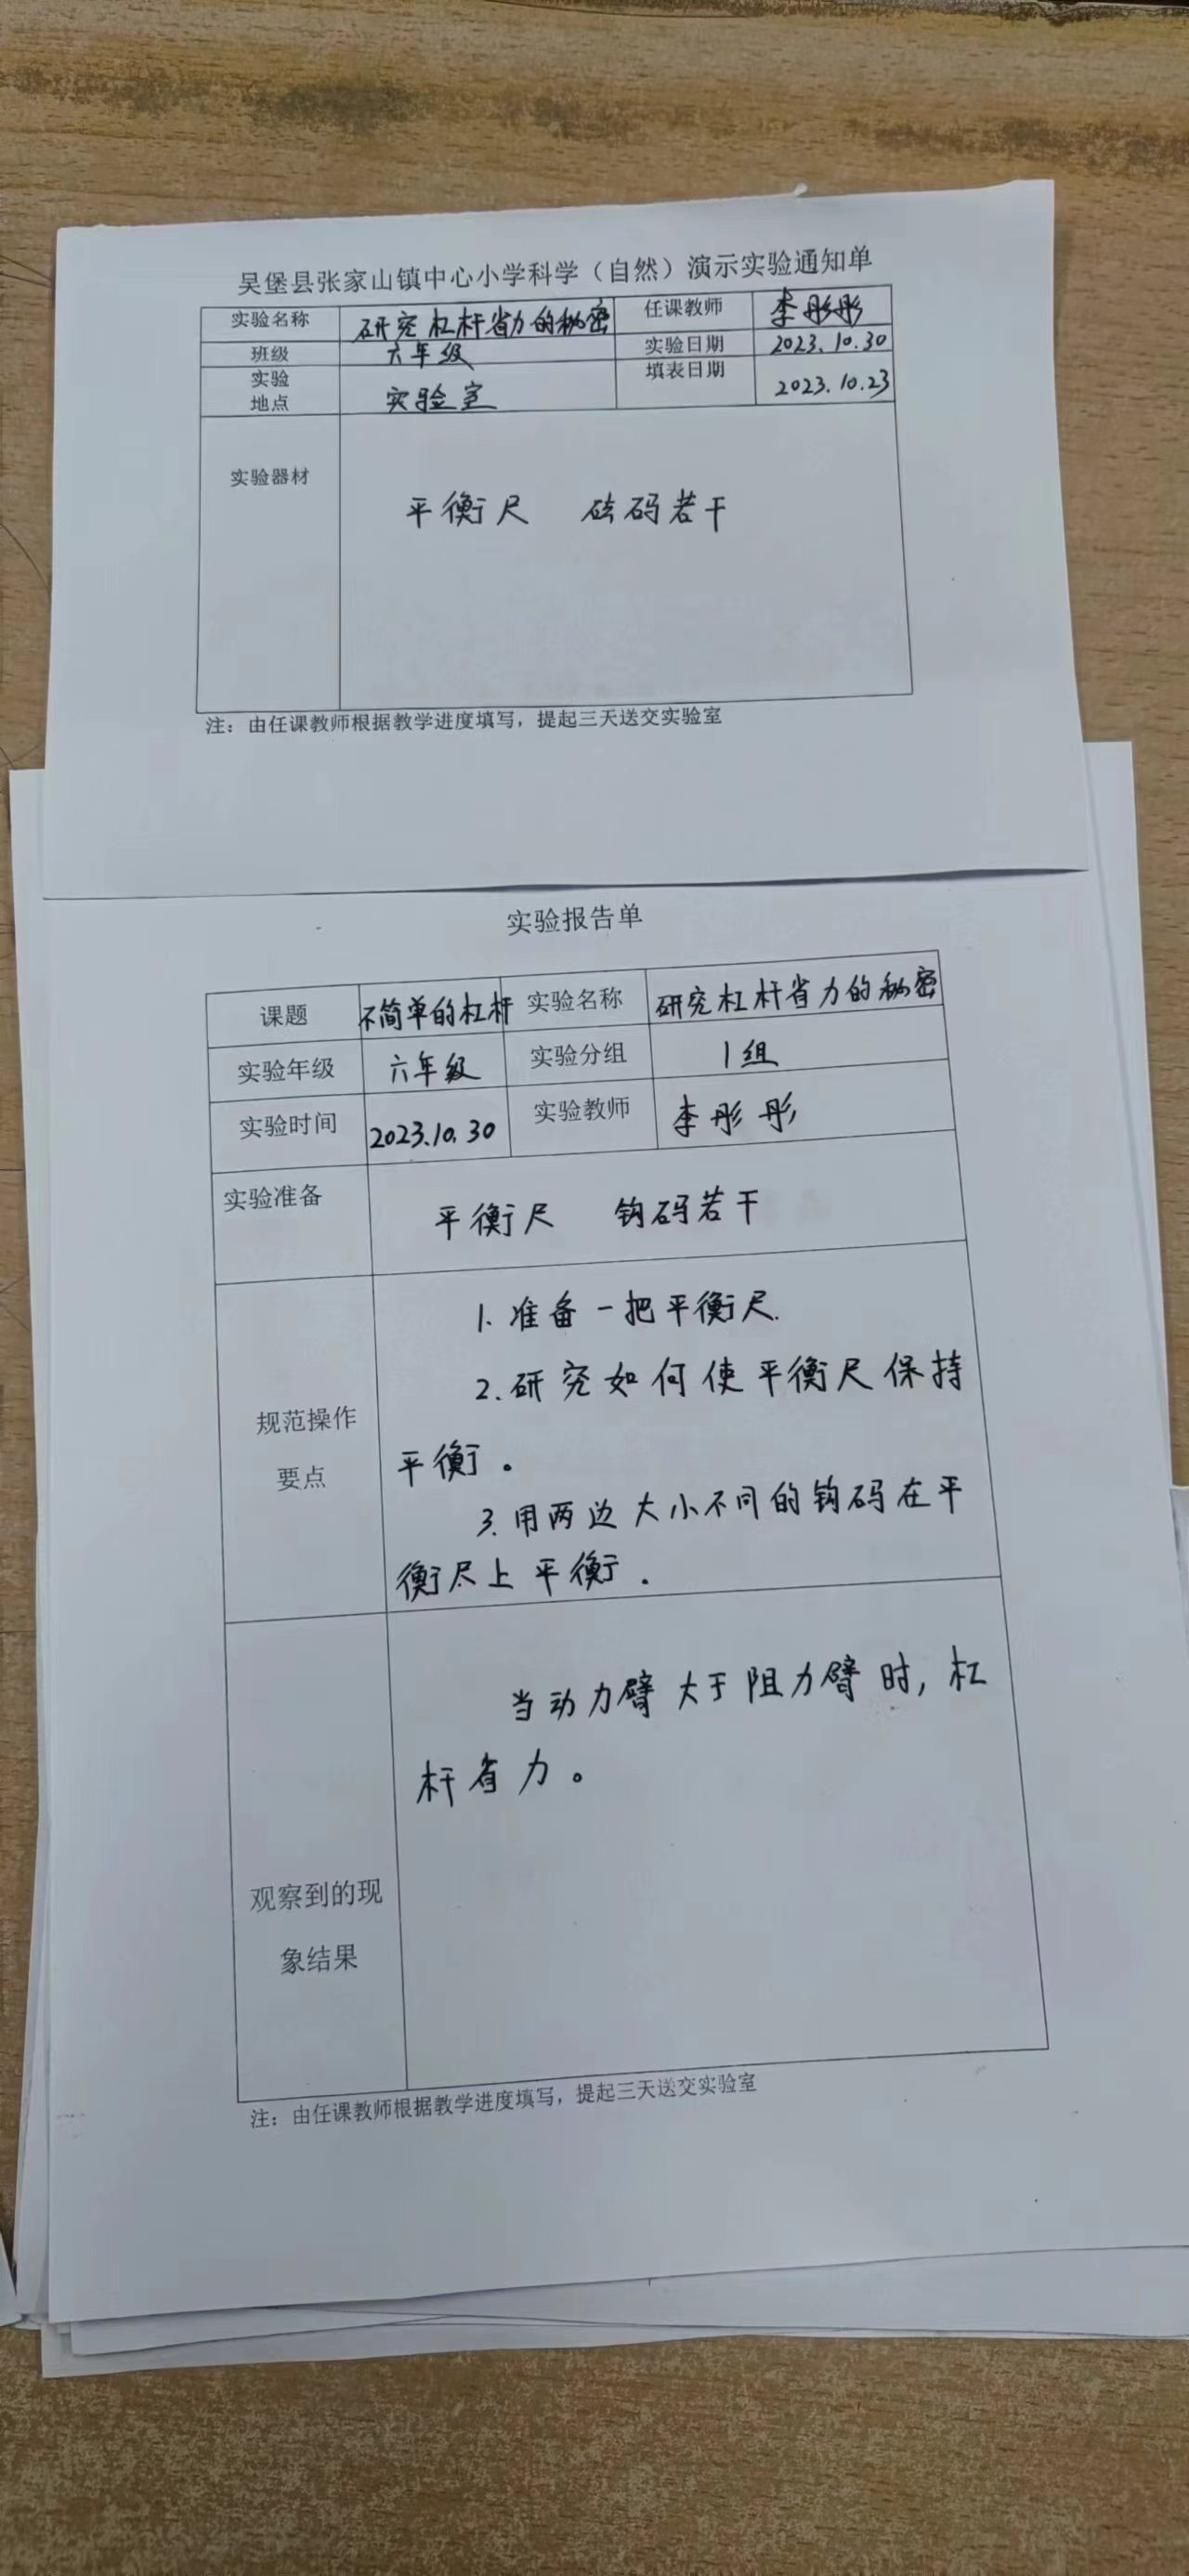 吴堡县张家山镇中心小学科学（自然）演示实验通知单
实验名称 研究杠杆省力的秘密 任课教师 李彤彤
班级 六年级 实验日期 2023.10.30
实验地点 实验室 填表日期 2023.10.23
实验器材 平衡尺 砝码若干
注：由任课教师根据教学进度填写，提起三天送交实验室
实验报告单
课题 不简单的杠杆 实验名称 研究杠杆省力的秘密
实验年级 六年级 实验分组 1组
实验时间 2023.10.30 实验教师 李彤彤
实验准备 平衡尺 钩码若干
规范操作
要点
1.准备一把平衡尺.
2.研究如何使平衡尺保持
平衡。
3.用两边大小不同的钩码在平
衡尺上平衡.
观察到的现
象结果
当动力臂大于阻力臂时,杠
杆省力。
注：由任课教师根据教学进度填写，提起三天送交实验室